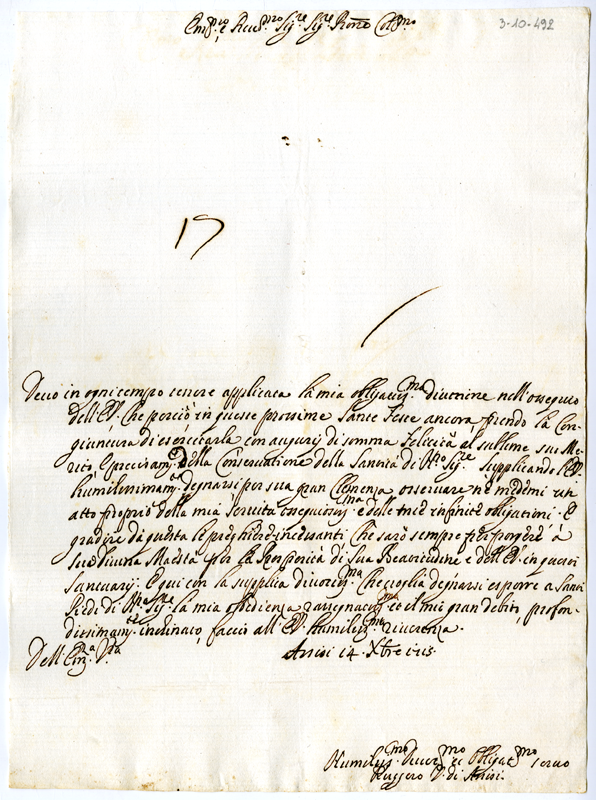 Em.mo e Rev.mo Sig.re Sig.re Prone Col.mo
3-10-492
17
Devo in ogni tempo tenere applicata la mia obligatis.ma divotione nell'ossequio
dell'E.V. che perciò in queste prossime Sante Feste ancora, prendo la con-
giuntura di esercitarla con augurij di somma Felicità al sublime suo Me-
rito, e della Conservatione della Santità di N.ro Sig.re supplicando l'E.V.
humilissimam.e degnarsi per sua gran Clemenza osservare ne medemi un
atto proprio della mia servitù ossequiosis.ma e delle mie infinite obligationi. E
gradire di questa le preghiere incessanti che sarò sempre per porgere à
Sua Divina Maestà per la Prosperità di Sua Beatitudine e dell'E.V. in questi
Santuarij. E qui con la supplica divotis.ma che voglia degnarsi esporre a Santi
Piedi di N.ro Sig.re la mia obedienza rassegnatis.ma et il mio gran debito, profon-
dissimam.te inchinato faccio all'E.V. humilis.ma riverenza.
Dell'Em.za V.ra
Assisi 14 Xbre 1715
Humilis.mo Devot.mo et Obligat.mo servo
Ruggero V. di Assisi.